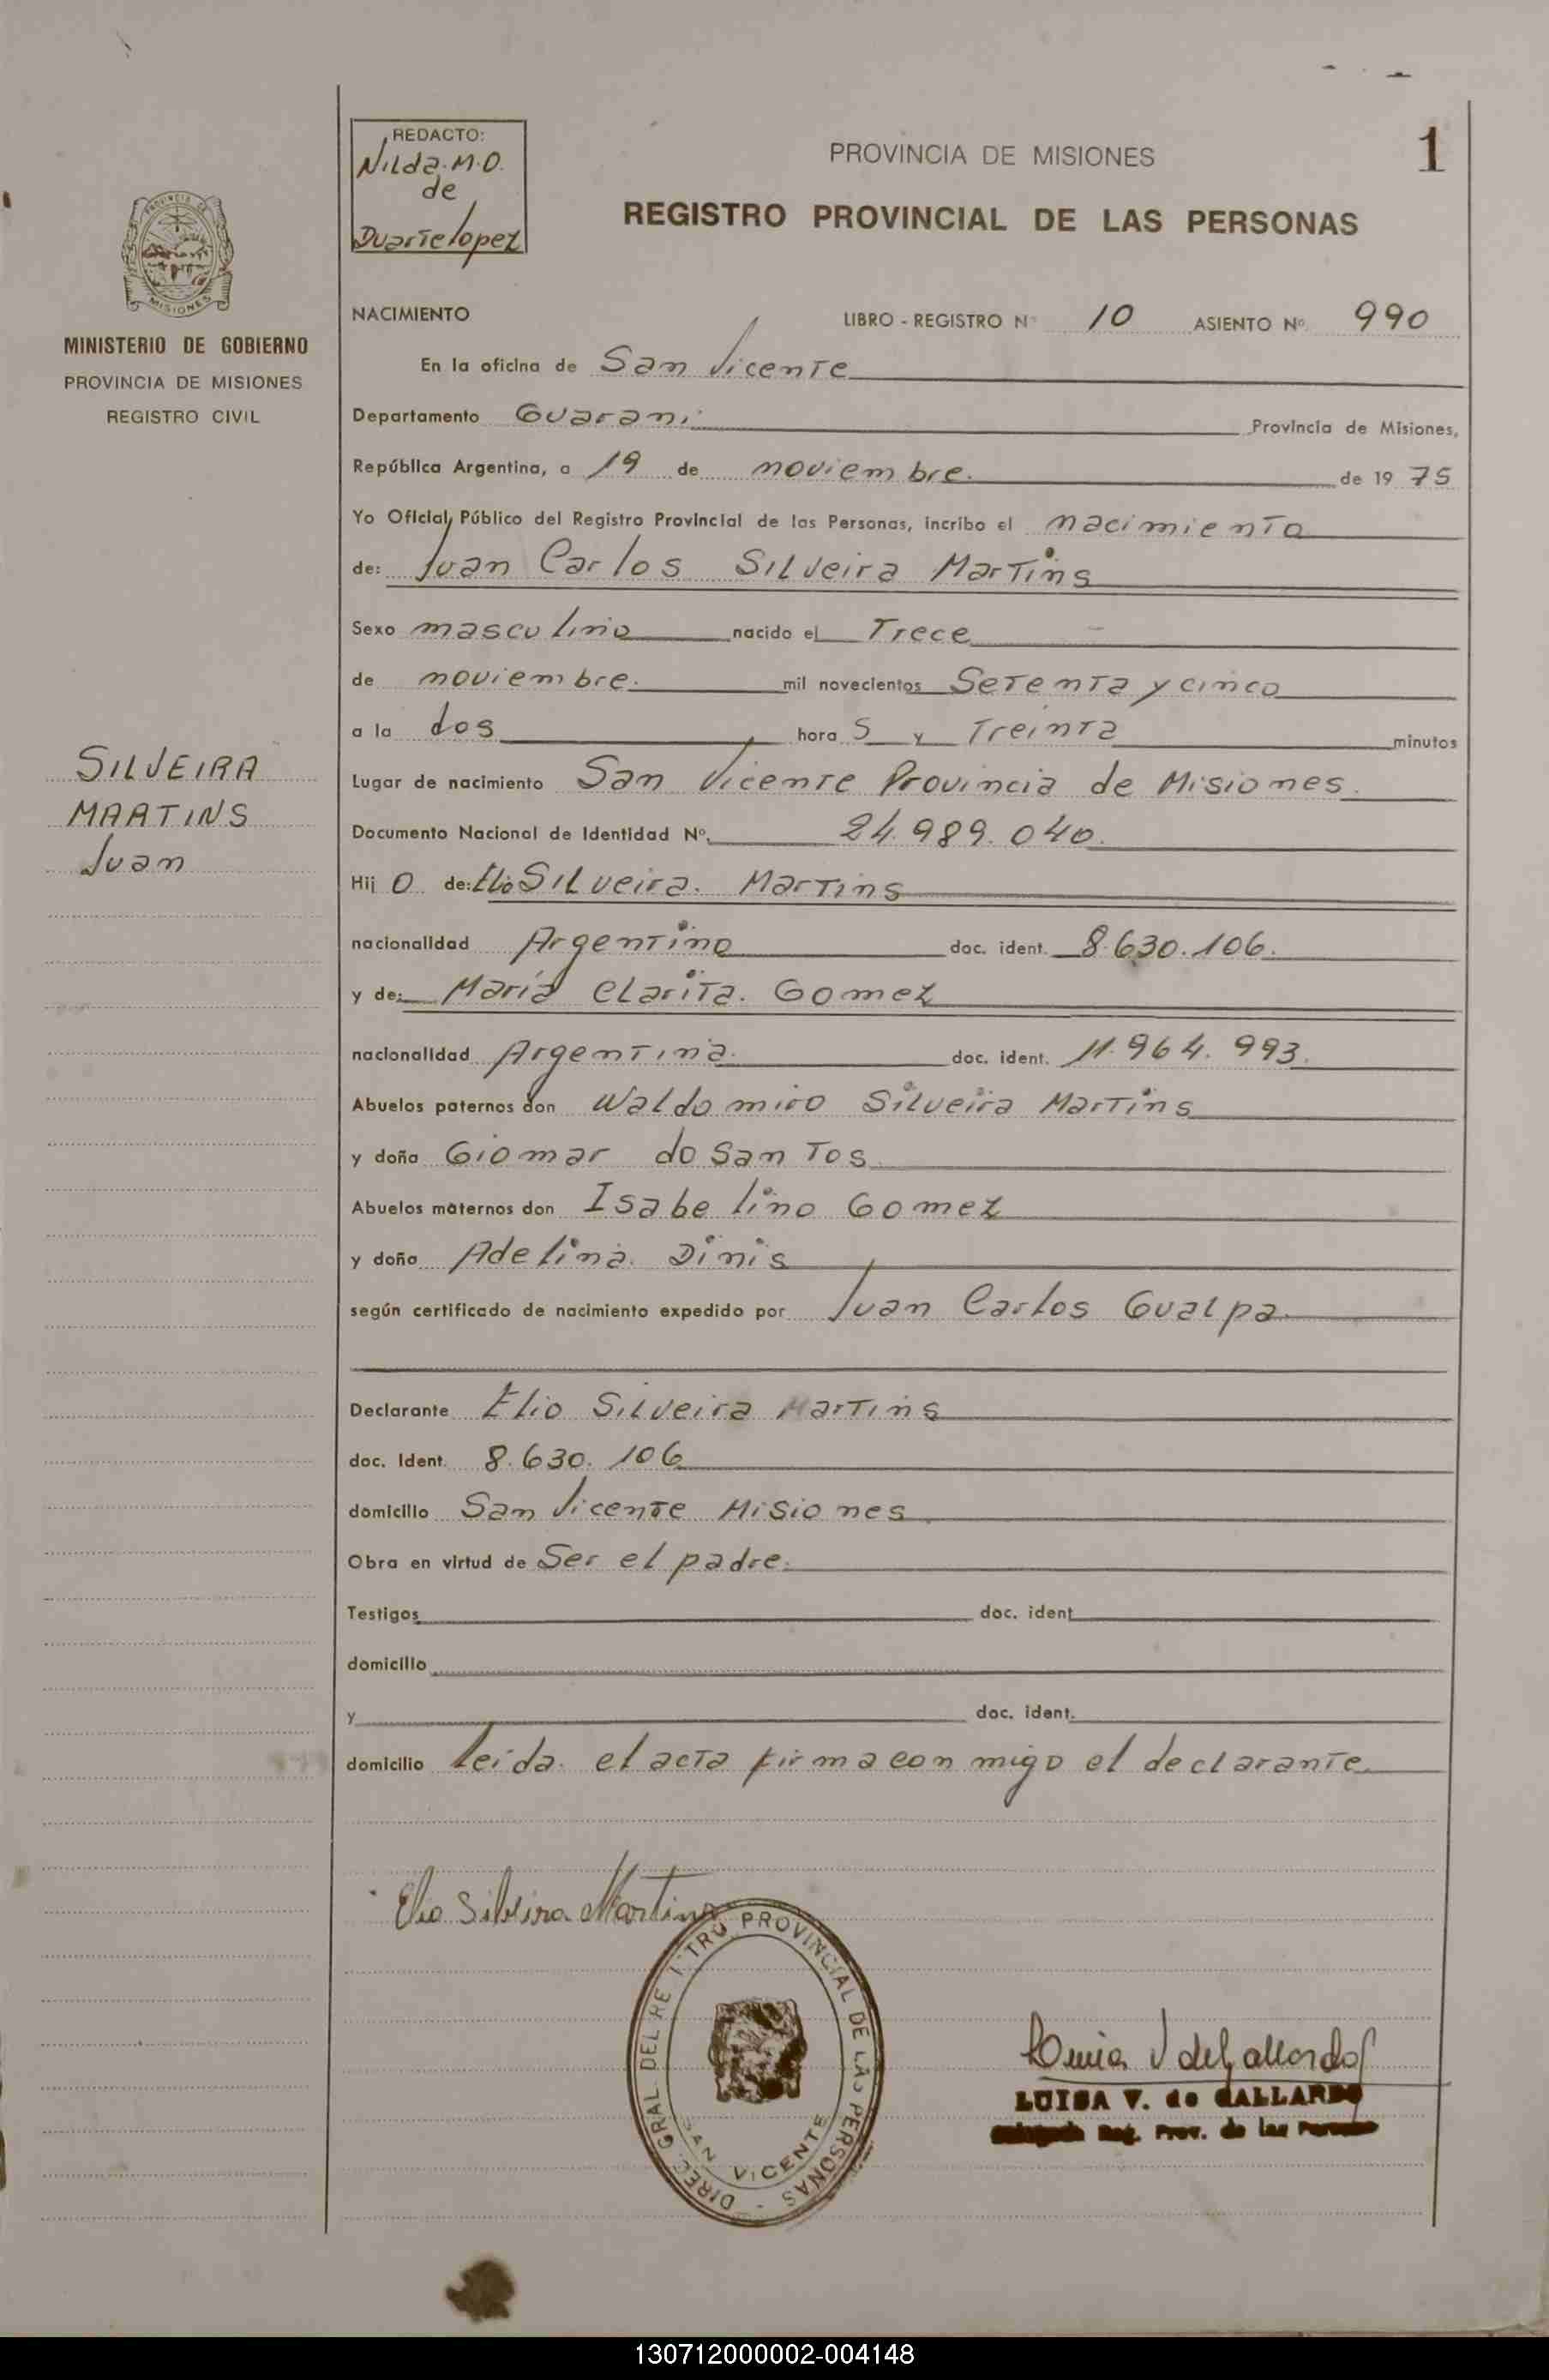 REDACTO:
Nilda.M.O.
de
Duarte lopez
PROVINCIA DE MISIONES
1
REGISTRO PROVINCIAL DE LAS PERSONAS
PROVINCIA DE
MISIONES
MINISTERIO DE GOBIERNO
PROVINCIA DE MISIONES
REGISTRO CIVIL
NACIMIENTO LIBRO - REGISTRO Nº 10 ASIENTO Nº 990
En la oficina de San Vicente
Departamento Guarani Provincia de Misiones,
República Argentina, a 19 de noviembre. de 19 75
Yo Oficial Público del Registro Provincial de las Personas, incribo el nacimiento
de: Juan Carlos Silveira Martins
Sexo masculino nacido el Trece
de noviembre. mil novecientos Setenta y cinco
a la dos hora S y Treinta minutos
SILVEIRA
MARTINS
Juan
Lugar de nacimiento San Vicente Provincia de Misiones.
Documento Nacional de Identidad Nº. 24.989.040.
Hij O de: Elio Silveira. Martins
nacionalidad Argentino doc. ident. 8.630.106.
y de: María Clarita. Gomez
nacionalidad Argentina. doc. ident. 11.964.993.
Abuelos paternos don Waldomiro Silveira Martins
y doña Giomar do Santos
Abuelos maternos don Isabelino Gomez
y doña Adelina. Dinis
según certificado de nacimiento expedido por Juan Carlos Gualpa.
Declarante Elio Silveira Martins
doc. Ident. 8.630.106
domicilio San Vicente Misiones
Obra en virtud de Ser el padre.
Testigos doc. ident
domicilio
y doc. ident.
domicilio leida. el acta firma conmigo el declarante.
Elio Silveira Martins
DIREC. GRAL. DEL REGISTRO PROVINCIAL DE LAS PERSONAS -
SAN VICENTE
Luisa V de Gallardo
LUISA V. de GALLARDO
Reg. Prov. de las Personas
130712000002-004148